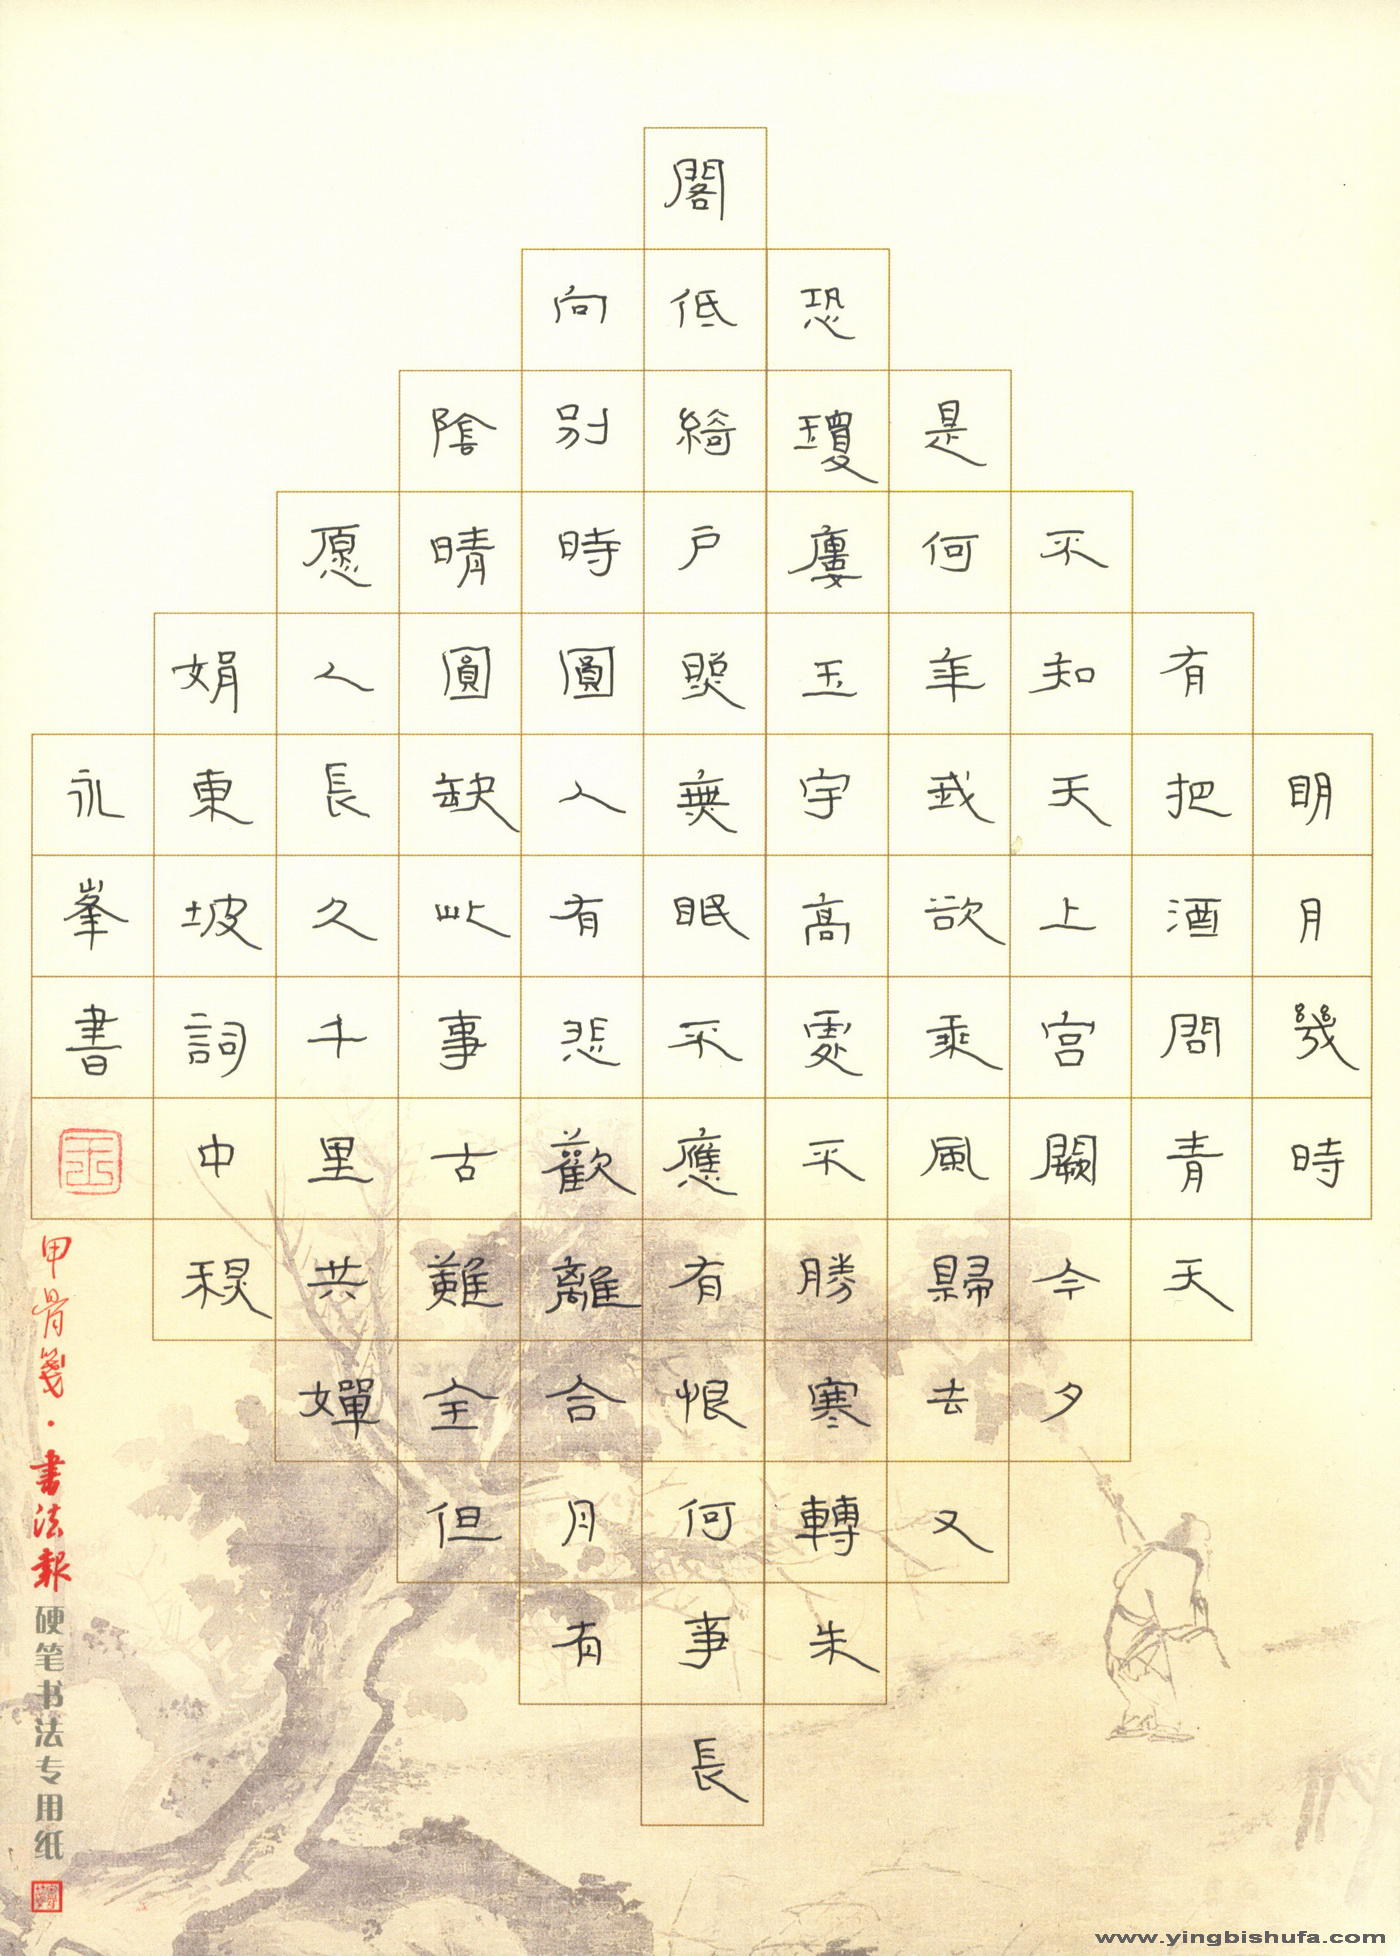 明月幾時
有把酒問青天
不知天上宫闕今夕
是何年我欲乘風歸去又
恐瓊廔玉宇高處不勝寒轉朱
閣低綺户照無眠不應有恨何事長
向别時圓人有悲歡離合月有
陰晴圓缺此事古難全但
愿人長久千里共嬋
娟東坡詞中秋
永峯書
甲骨箋·書法報
硬笔书法专用纸
www.yingbishufa.com